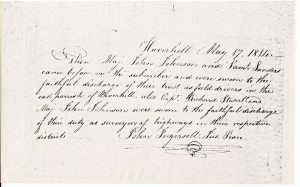 Haverhill May 17, 1814.
Then Maj. John Johnson and Saml. Sanders
came before me the subscriber and were sworn to the
faithful discharge of their trust as field drivers in the
east parish of Haverhill, also Capt. Richard
Maj. John Johnson were sworn to the faithful discharge
of their duty as surveyors of highways in their respective
districts
John Ingersoll Jus. Peace